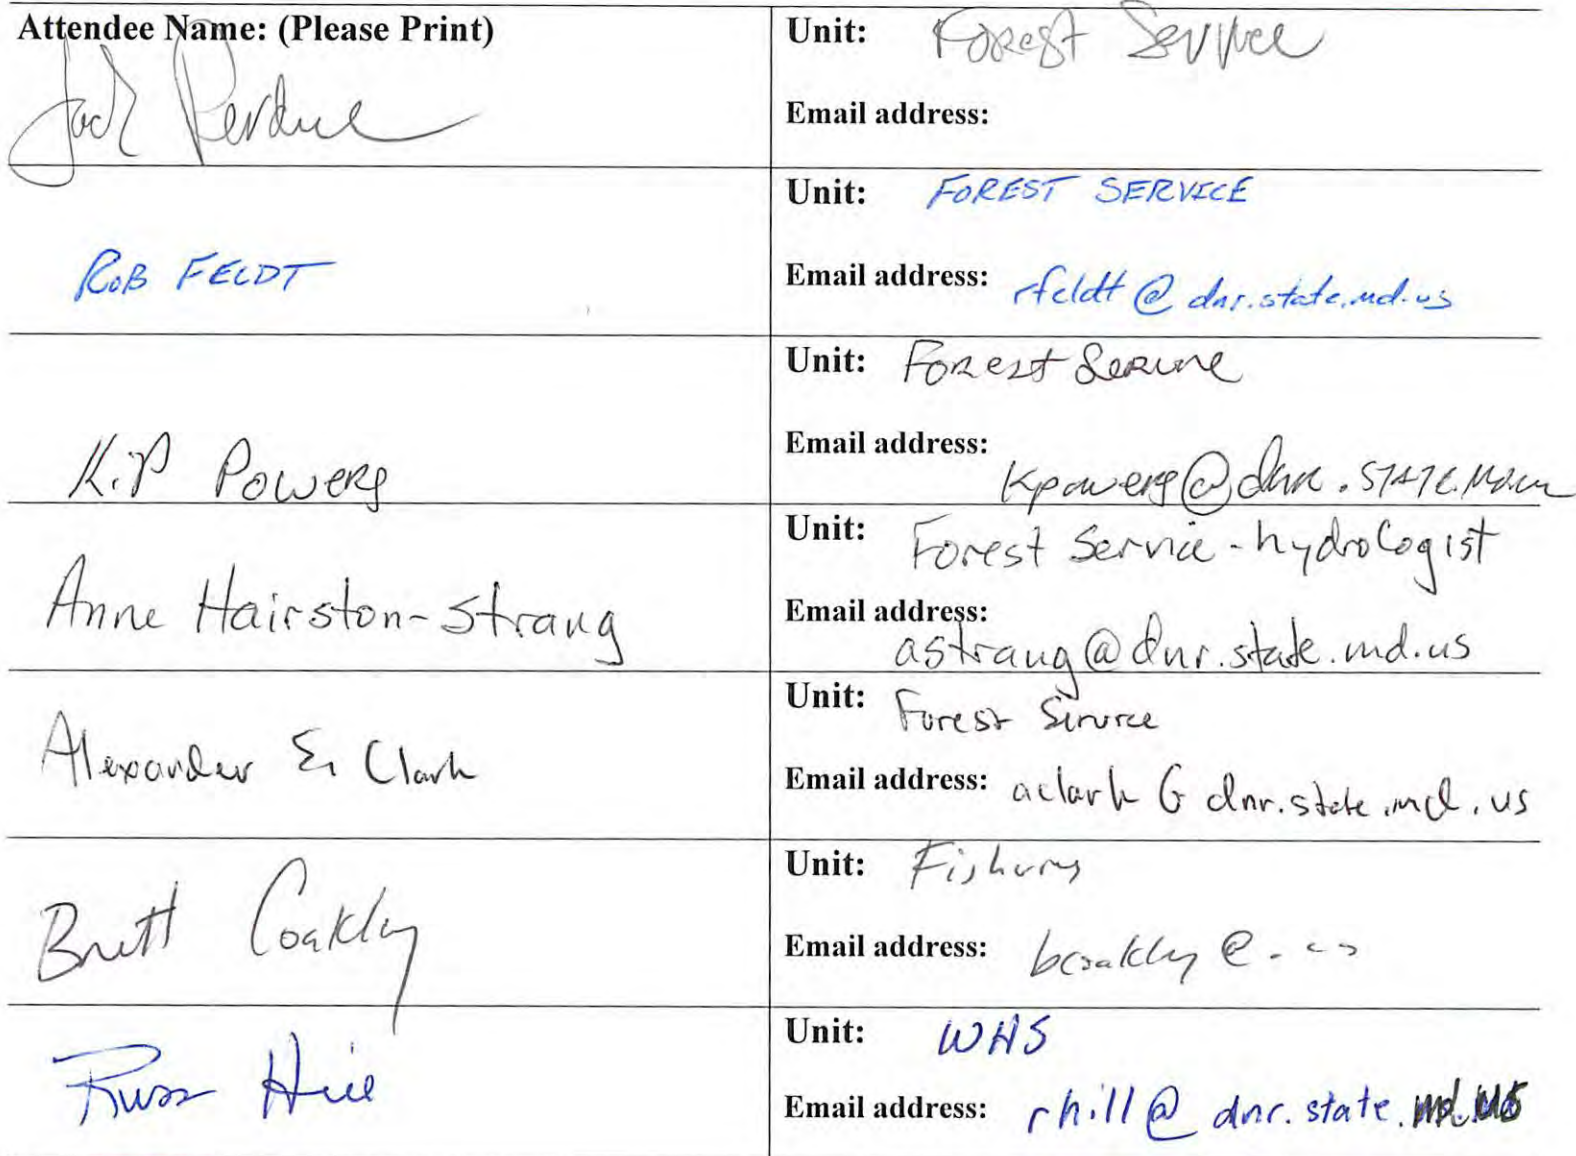 Attendee Name: (Please Print)
Jack Perdue
Unit: Forest Service
Email address:
ROB FELDT
Unit: FOREST SERVICE
Email address: rfeldt@dnr.state.md.us
Kip Powers
Unit: Forest Service
Email address: kpowers@dnr.STATE.MD.us
Anne Hairston-Strang
Unit: Forest Service - hydrologist
Email address: astrang@dnr.state.md.us
Alexander E. Clark
Unit: Forest Service
Email address: aclark@dnr.state.md.us
Brett Coakley
Unit: Fishery
Email address: bcoakley@
Russ Hill
Unit: WHS
Email address: rhill@dnr.state.md.us